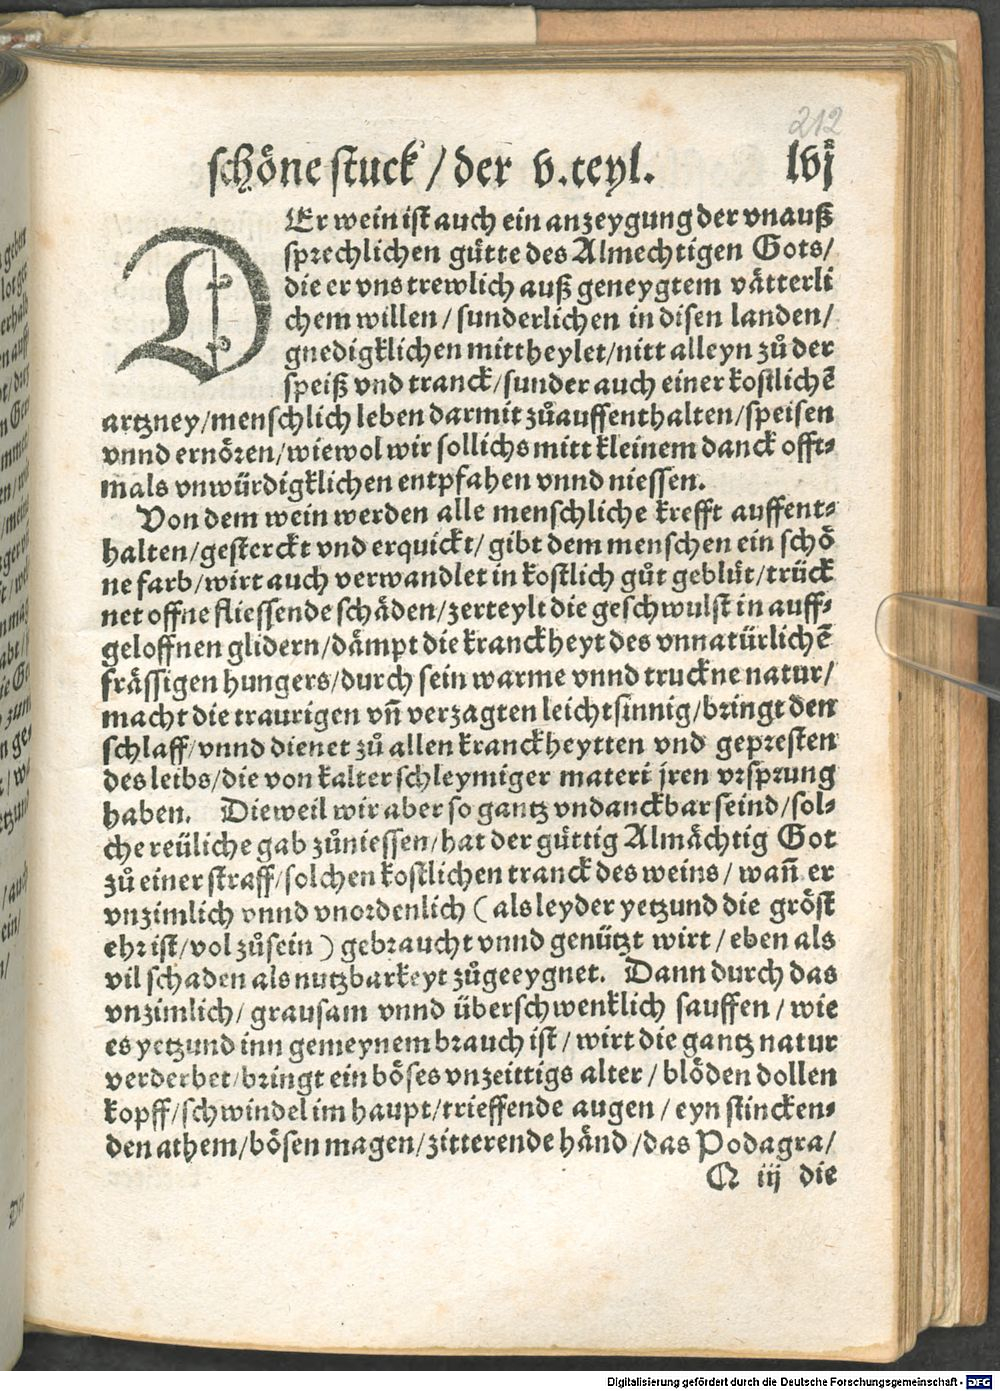 212
schöne stuck / der v. teyl. lvj
DEr wein ist auch ein anzeygung der vnauß
sprechlichen gůtte des Almechtigen Gots /
die er vns trewlich auß geneygtem våtterli
chem willen / sunderlichen in disen landen /
gnedigklichen mittheylet / nitt alleyn zů der
speiß vnd tranck / sunder auch einer kostlichẽ
artzney / menschlich leben darmit zůauffenthalten / speisen
vnnd ernören / wiewol wir sollichs mitt kleinem danck offt⸗
mals vnwürdigklichen entpfahen vnnd niessen.
Von dem wein werden alle menschliche krefft auffent⸗
halten / gesterckt vnd erquickt / gibt dem menschen ein schö
ne farb / wirt auch verwandlet in kostlich gůt geblůt / trück
net offne fliessende schåden / zerteylt die geschwulst in auff⸗
geloffnen glidern / dåmpt die kranckheyt des vnnatürlichẽ
frässigen hungers / durch sein warme vnnd truckne natur /
macht die traurigen vñ verzagten leichtsinnig / bringt den
schlaff / vnnd dienet zů allen kranckheytten vnd gepresten
des leibs / die von kalter schleymiger materi jren vrsprung
haben. Dieweil wir aber so gantz vndanckbar seind / sol⸗
che reüliche gab zůniessen / hat der gůttig Almåchtig Got
zů einer straff / solchen kostlichen tranck des weins / wañ er
vnzimlich vnnd vnordenlich ( als leyder yetzund die gröst
ehr ist / vol zůsein ) gebraucht vnnd genützt wirt / eben als
vil schaden als nutzbarkeyt zůgeeygnet. Dann durch das
vnzimlich / grausam vnnd überschwenklich sauffen / wie
es yetzund inn gemeynem brauch ist / wirt die gantz natur
verderbet / bringt ein böses vnzeittigs alter / blöden dollen
kopff / schwindel im haupt / trieffende augen / eyn stincken⸗
den athem / bösen magen / zitterende hånd / das Podagra /
Q iij die
Digitalisierung gefördert durch die Deutsche Forschungsgemeinschaft - DFG